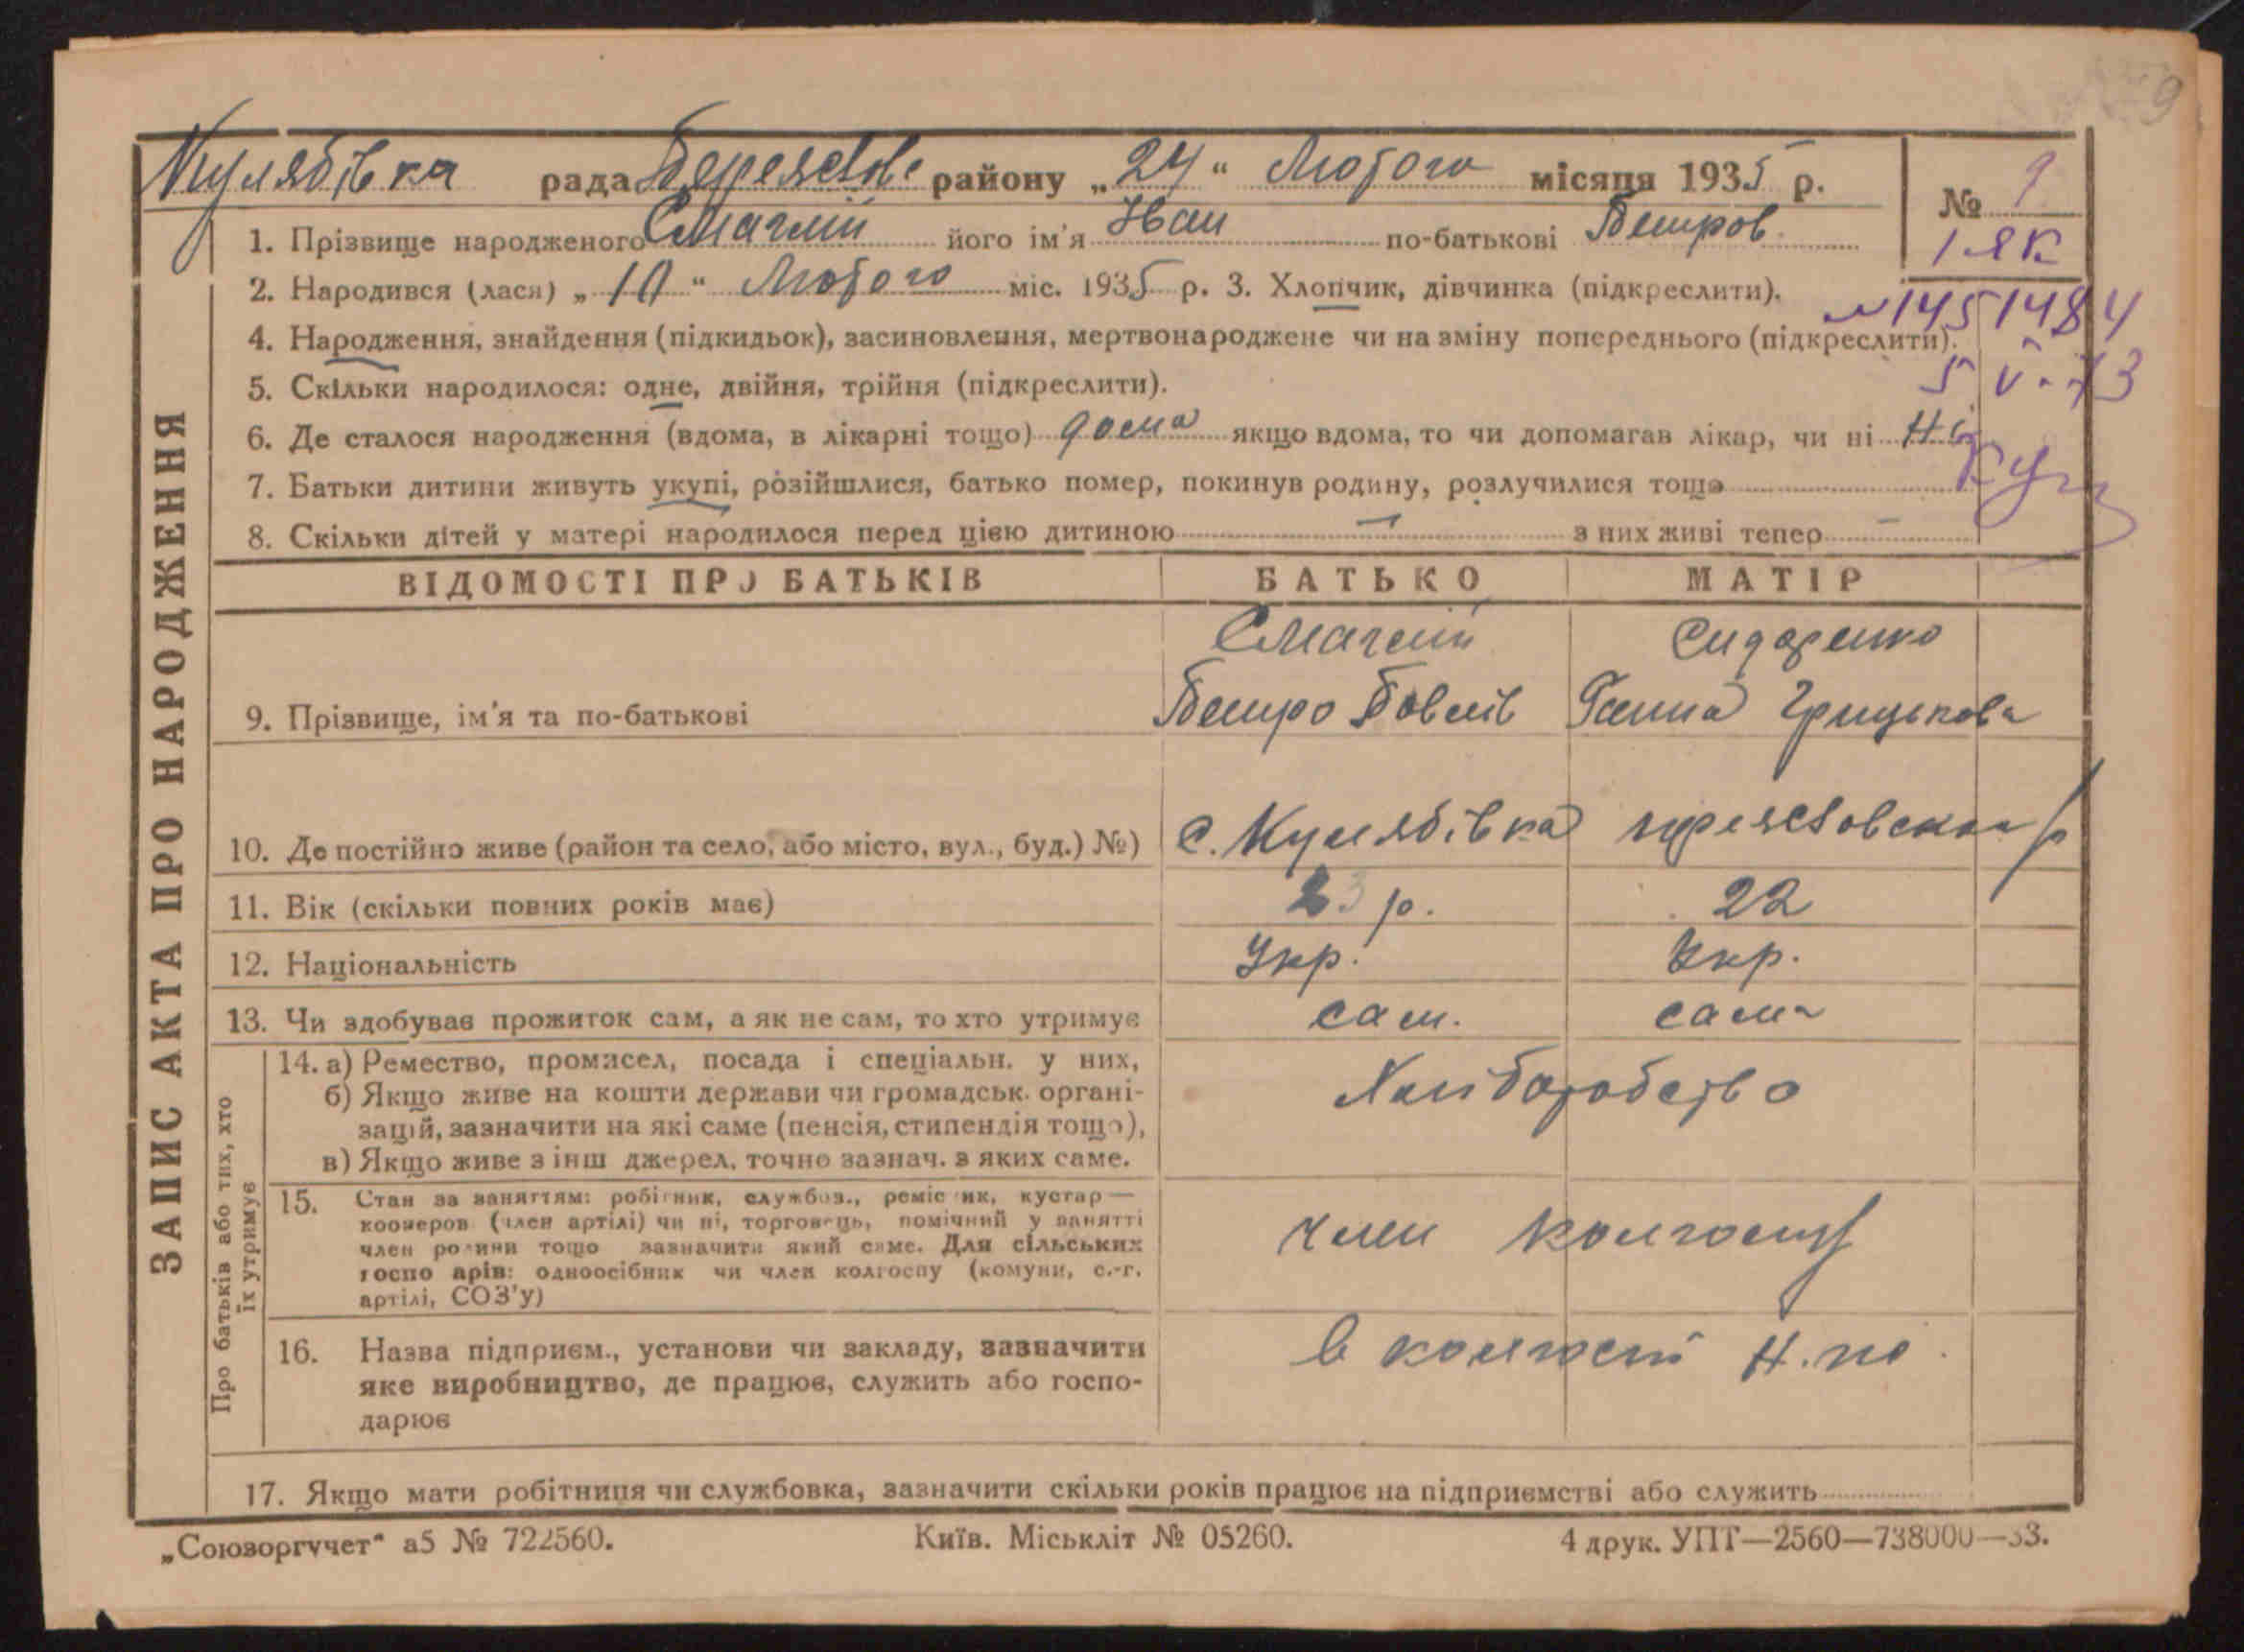 9
Кулябівка рада району „24“ Лютого місяця 1935 р.
№ 9
1. Прізвище народженого Смаглій його ім'я Іван по-батькові Петров.
1 як
2. Народився (лася) „10“ Лютого міс. 1935 р. 3. Хлопчик, дівчинка (підкреслити).
№ 1451484
4. Народження, знайдення (підкидьок), засиновлення, мертвонароджене чи на зміну попереднього (підкреслити).
5 V-73
5. Скільки народилося: одне, двійня, трійня (підкреслити).
6. Де сталося народження (вдома, в лікарні тощо) дома якщо вдома, то чи допомагав лікар, чи ні Ні
7. Батьки дитини живуть укупі, розійшлися, батько помер, покинув родину, розлучилися тощо
8. Скільки дітей у матері народилося перед цією дитиною — з них живі тепер —
ЗАПИС АКТА ПРО НАРОДЖЕННЯ
ВІДОМОСТІ ПРО БАТЬКІВ БАТЬКО МАТІР
9. Прізвище, ім'я та по-батькові
Смаглій
Петро Павлів
Сидоренко
Ганна Грицькова
10. Де постійно живе (район та село, або місто, вул., буд.) №) с. Кулябівка
11. Вік (скільки повних років має) 23 р. 22
12. Національність Укр. Укр.
13. Чи здобуває прожиток сам, а як не сам, то хто утримує сам. сама
Про батьків або тих, хто
їх утримує
14. а) Ремество, промисел, посада і спеціальн. у них,
б) Якщо живе на кошти держави чи громадськ. органі-
зацій, зазначити на які саме (пенсія, стипендія тощо),
в) Якщо живе з інш джерел, точно зазнач. з яких саме.
Хліборобство
15. Стан за заняттям: робітник, службов., реміс ик, кустар —
кооперов (член артілі) чи ні, торговець, помічний у занятті
член родини тощо зазначити який саме. Для сільських
госпо арів: одноосібник чи член колгоспу (комуни, с.-г.
артілі, СОЗ'у)
член колгоспу
16. Назва підприєм., установи чи закладу, зазначити
яке виробництво, де працює, служить або госпо-
дарює
в колгоспі
17. Якщо мати робітниця чи службовка, зазначити скільки років працює на підприємстві або служить
„Союзоргучет“ а5 № 722560. Київ. Міськліт № 05260. 4 друк. УПТ—2560—738000—33.